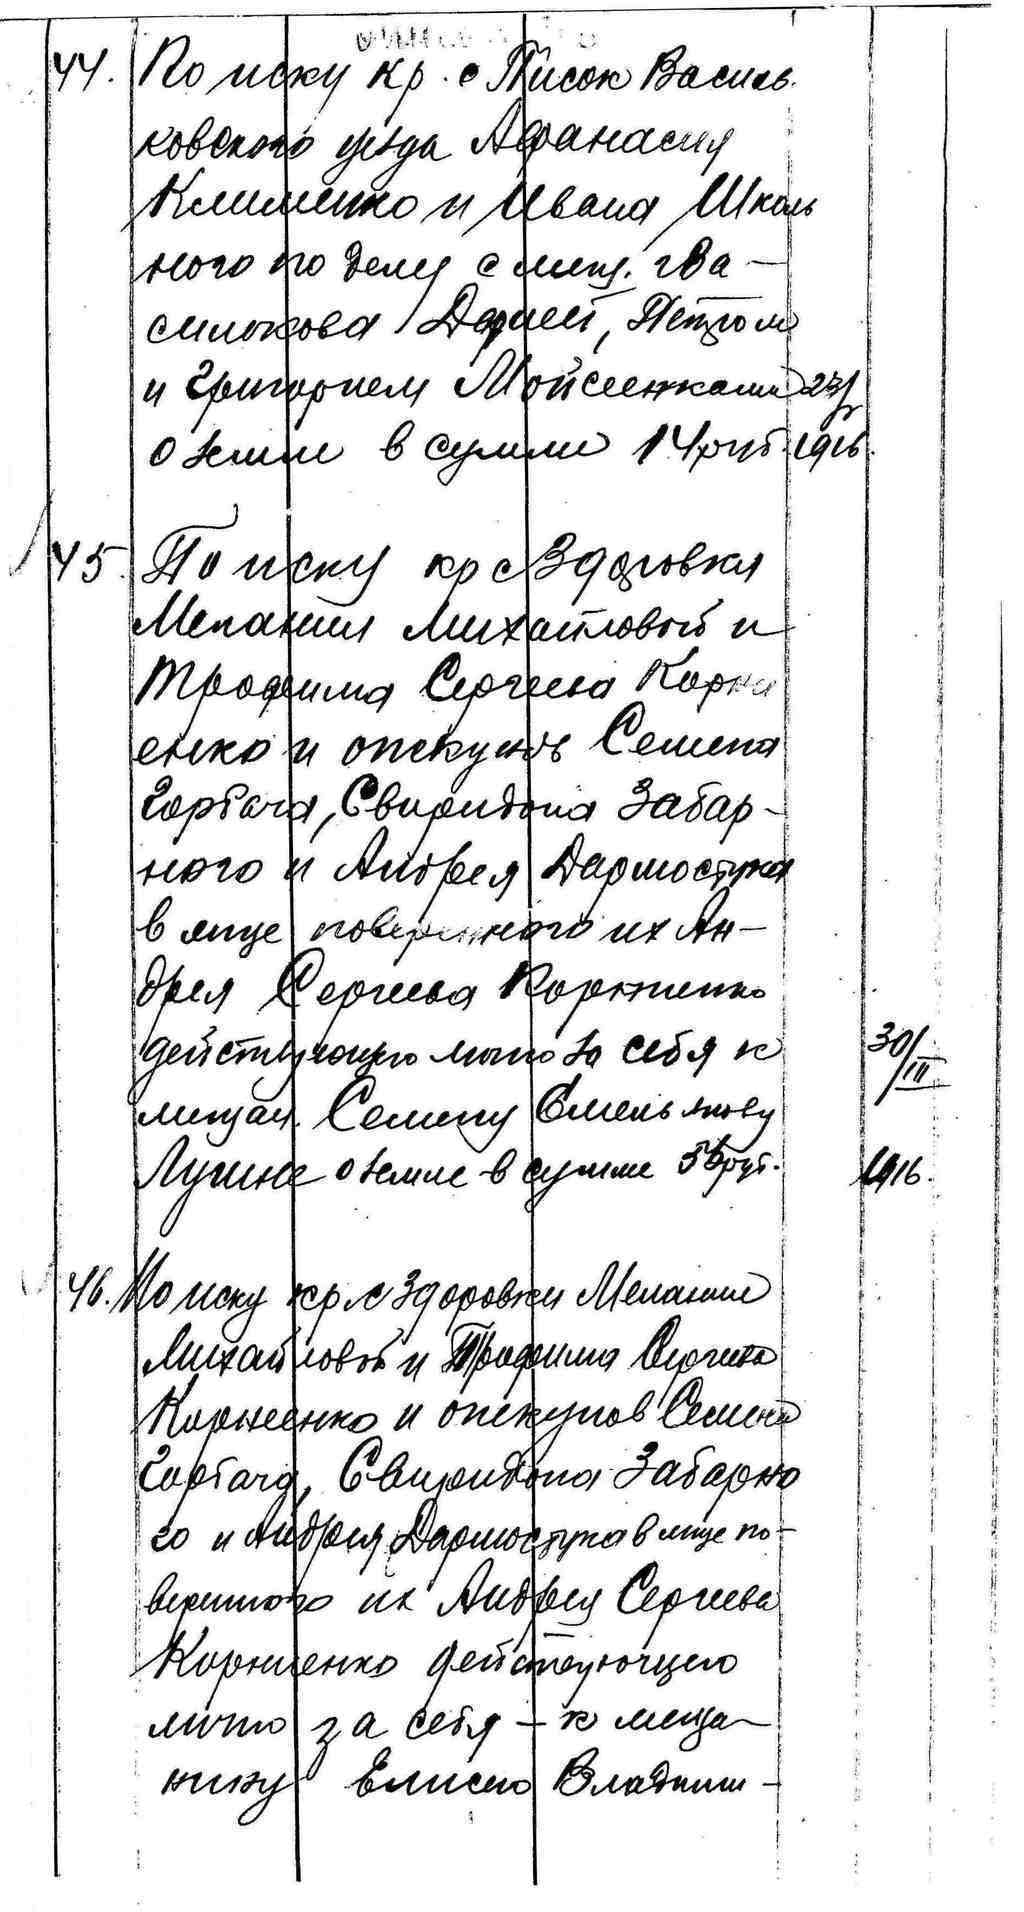 44. По иску кр. с Писок Василь-
ковского уезда Афанасия
Клименко и Ивана Школь
ного по делу с мещ. г Ва-
силькова Дарией, Петром
и Григорием Мойсеенками 23/
о земле в сумме 14 руб. 1916.
45. По иску кр с Здоровки
Мелании Михайловой и
Трофима Сергеева Корни
енко и опекунов Семена
Горбача, Свиридона Забар-
ного и Андрея Дармостука
в лице поверенного их Ан-
дрея Сергеева Корниенко
действующего лично за себя к 30/III
мещан. Семену Емельянову
Лущене о земле в сумме руб. 1916.
46. По иску кр с Здоровки Мелании
Михайловой и Трофима Сергеева
Корнеенко и опекунов Семена
Горбача, Свиридона Забарно
го и Андрея Дармостука в лице по-
веренного их Андрея Сергеева
Корниенко действующего
лично за себя - к меща-
нину Елисею Владими-